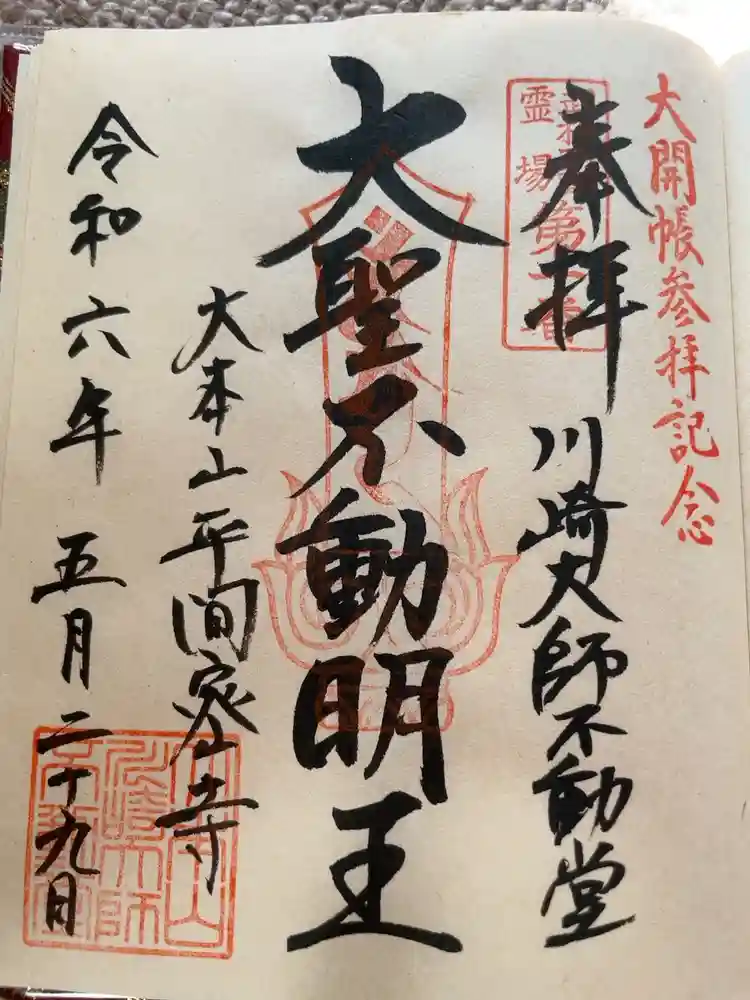 大開帳参拝記念
奉拝
霊場第一番
川崎大師不動堂
大聖不動明王
大本山平間寺
令和六年五月二十九日